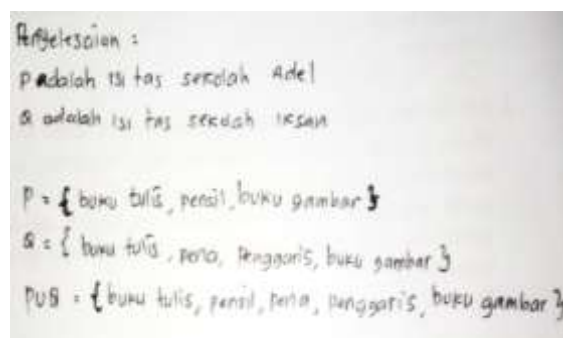 Penyelesaian :
P adalah isi tas sekolah Adel
Q adalah isi tas sekolah iksan
P = { buku tulis, pensil, buku gambar }
Q = { buku tulis, pena, Penggaris, buku gambar }
PUQ = { buku tulis, pensil, pena, penggaris, buku gambar }